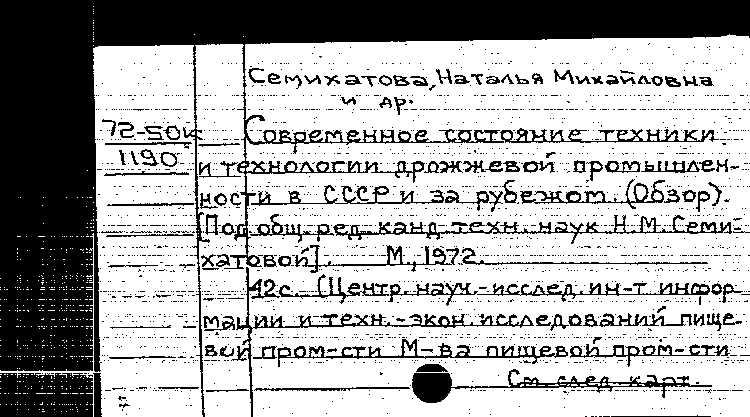 Семихатова, Наталья Михайловна
и др.
72-50к
1190
Современное состояние техники
и технологии дрожжевой промышлен-
ности в СССР и за рубежом. (Обзор).
[Под общ. ред. канд. техн. наук Н.М. Семи-
хатовой]. М., 1972.
42с. (Центр. науч.-исслед. ин-т инфор
мации и техн.-экон. исследований пище-
вой пром-сти М-ва пищевой пром-сти
См. след. карт.